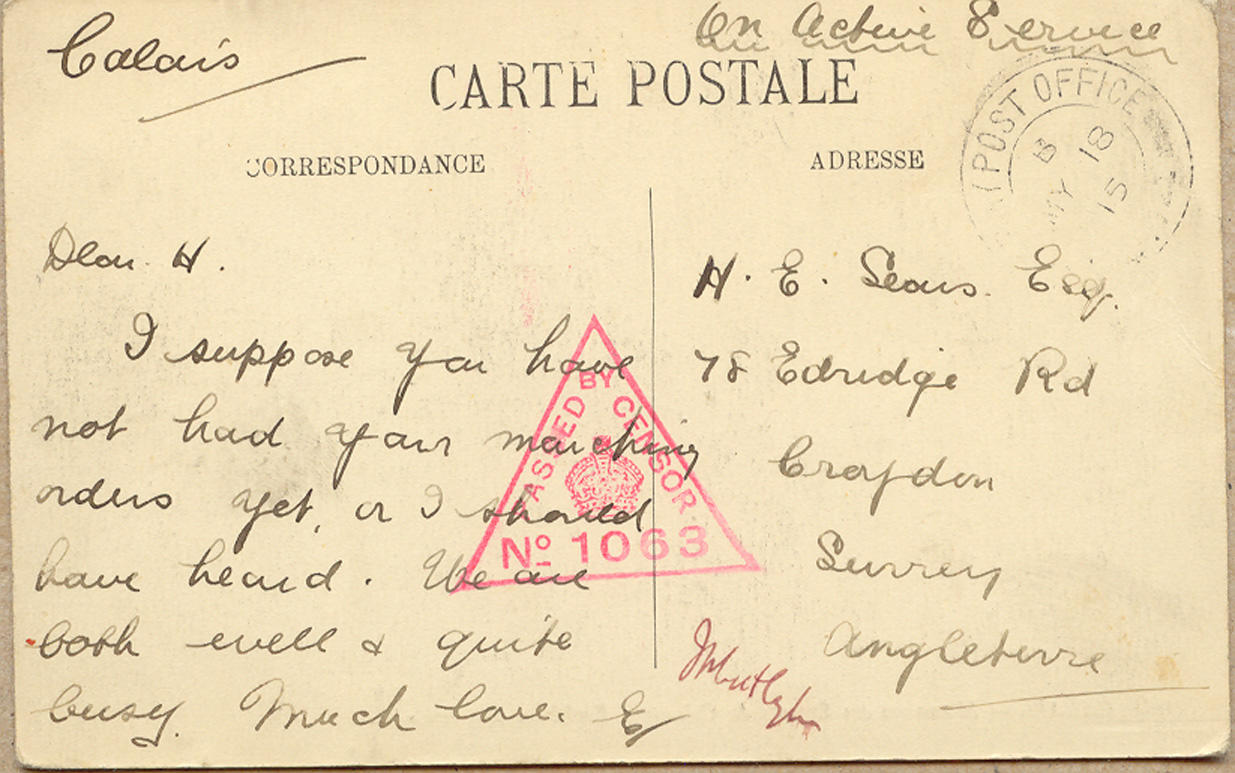 Calais
On Active Service
CARTE POSTALE
CORRESPONDANCE
ADRESSE
POST OFFICE
B
MY 18
15
Dear H.
I suppose you have
not had your marching
orders yet, or I should
have heard. We are
both well & quite
busy. Much love. E
PASSED BY CENSOR
No 1063
H. E. Sears. Esq.
78 Edridge Rd
Croydon
Surrey
Angleterre